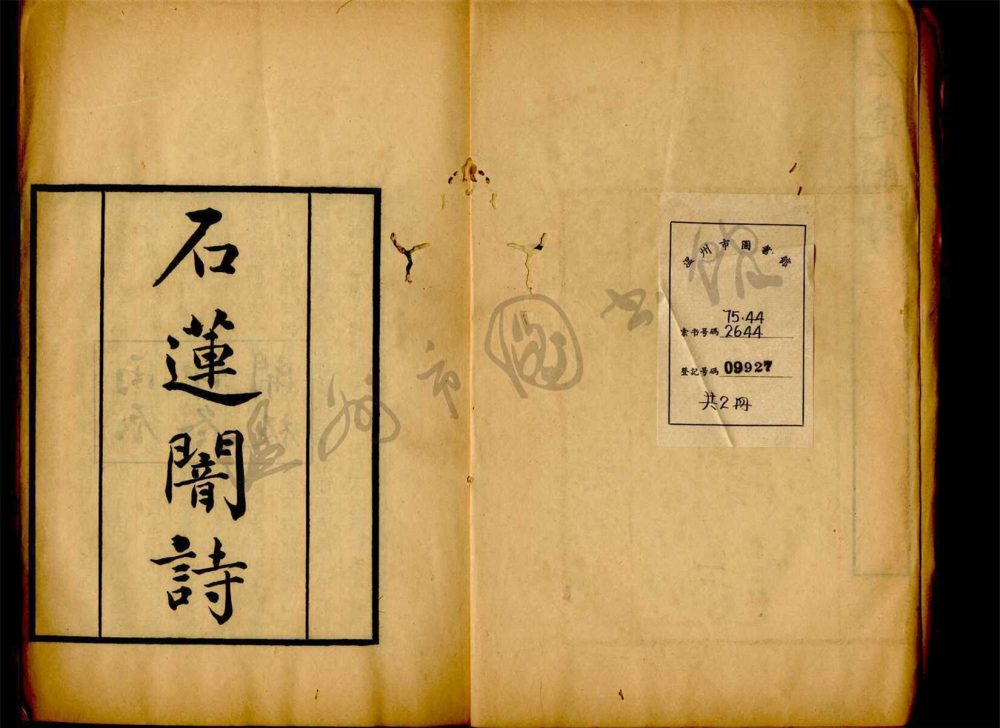 石蓮闇詩
温州市圖書館
75.44
索书号碼 2644
登記号碼 09927
共2冊
温州市图书馆